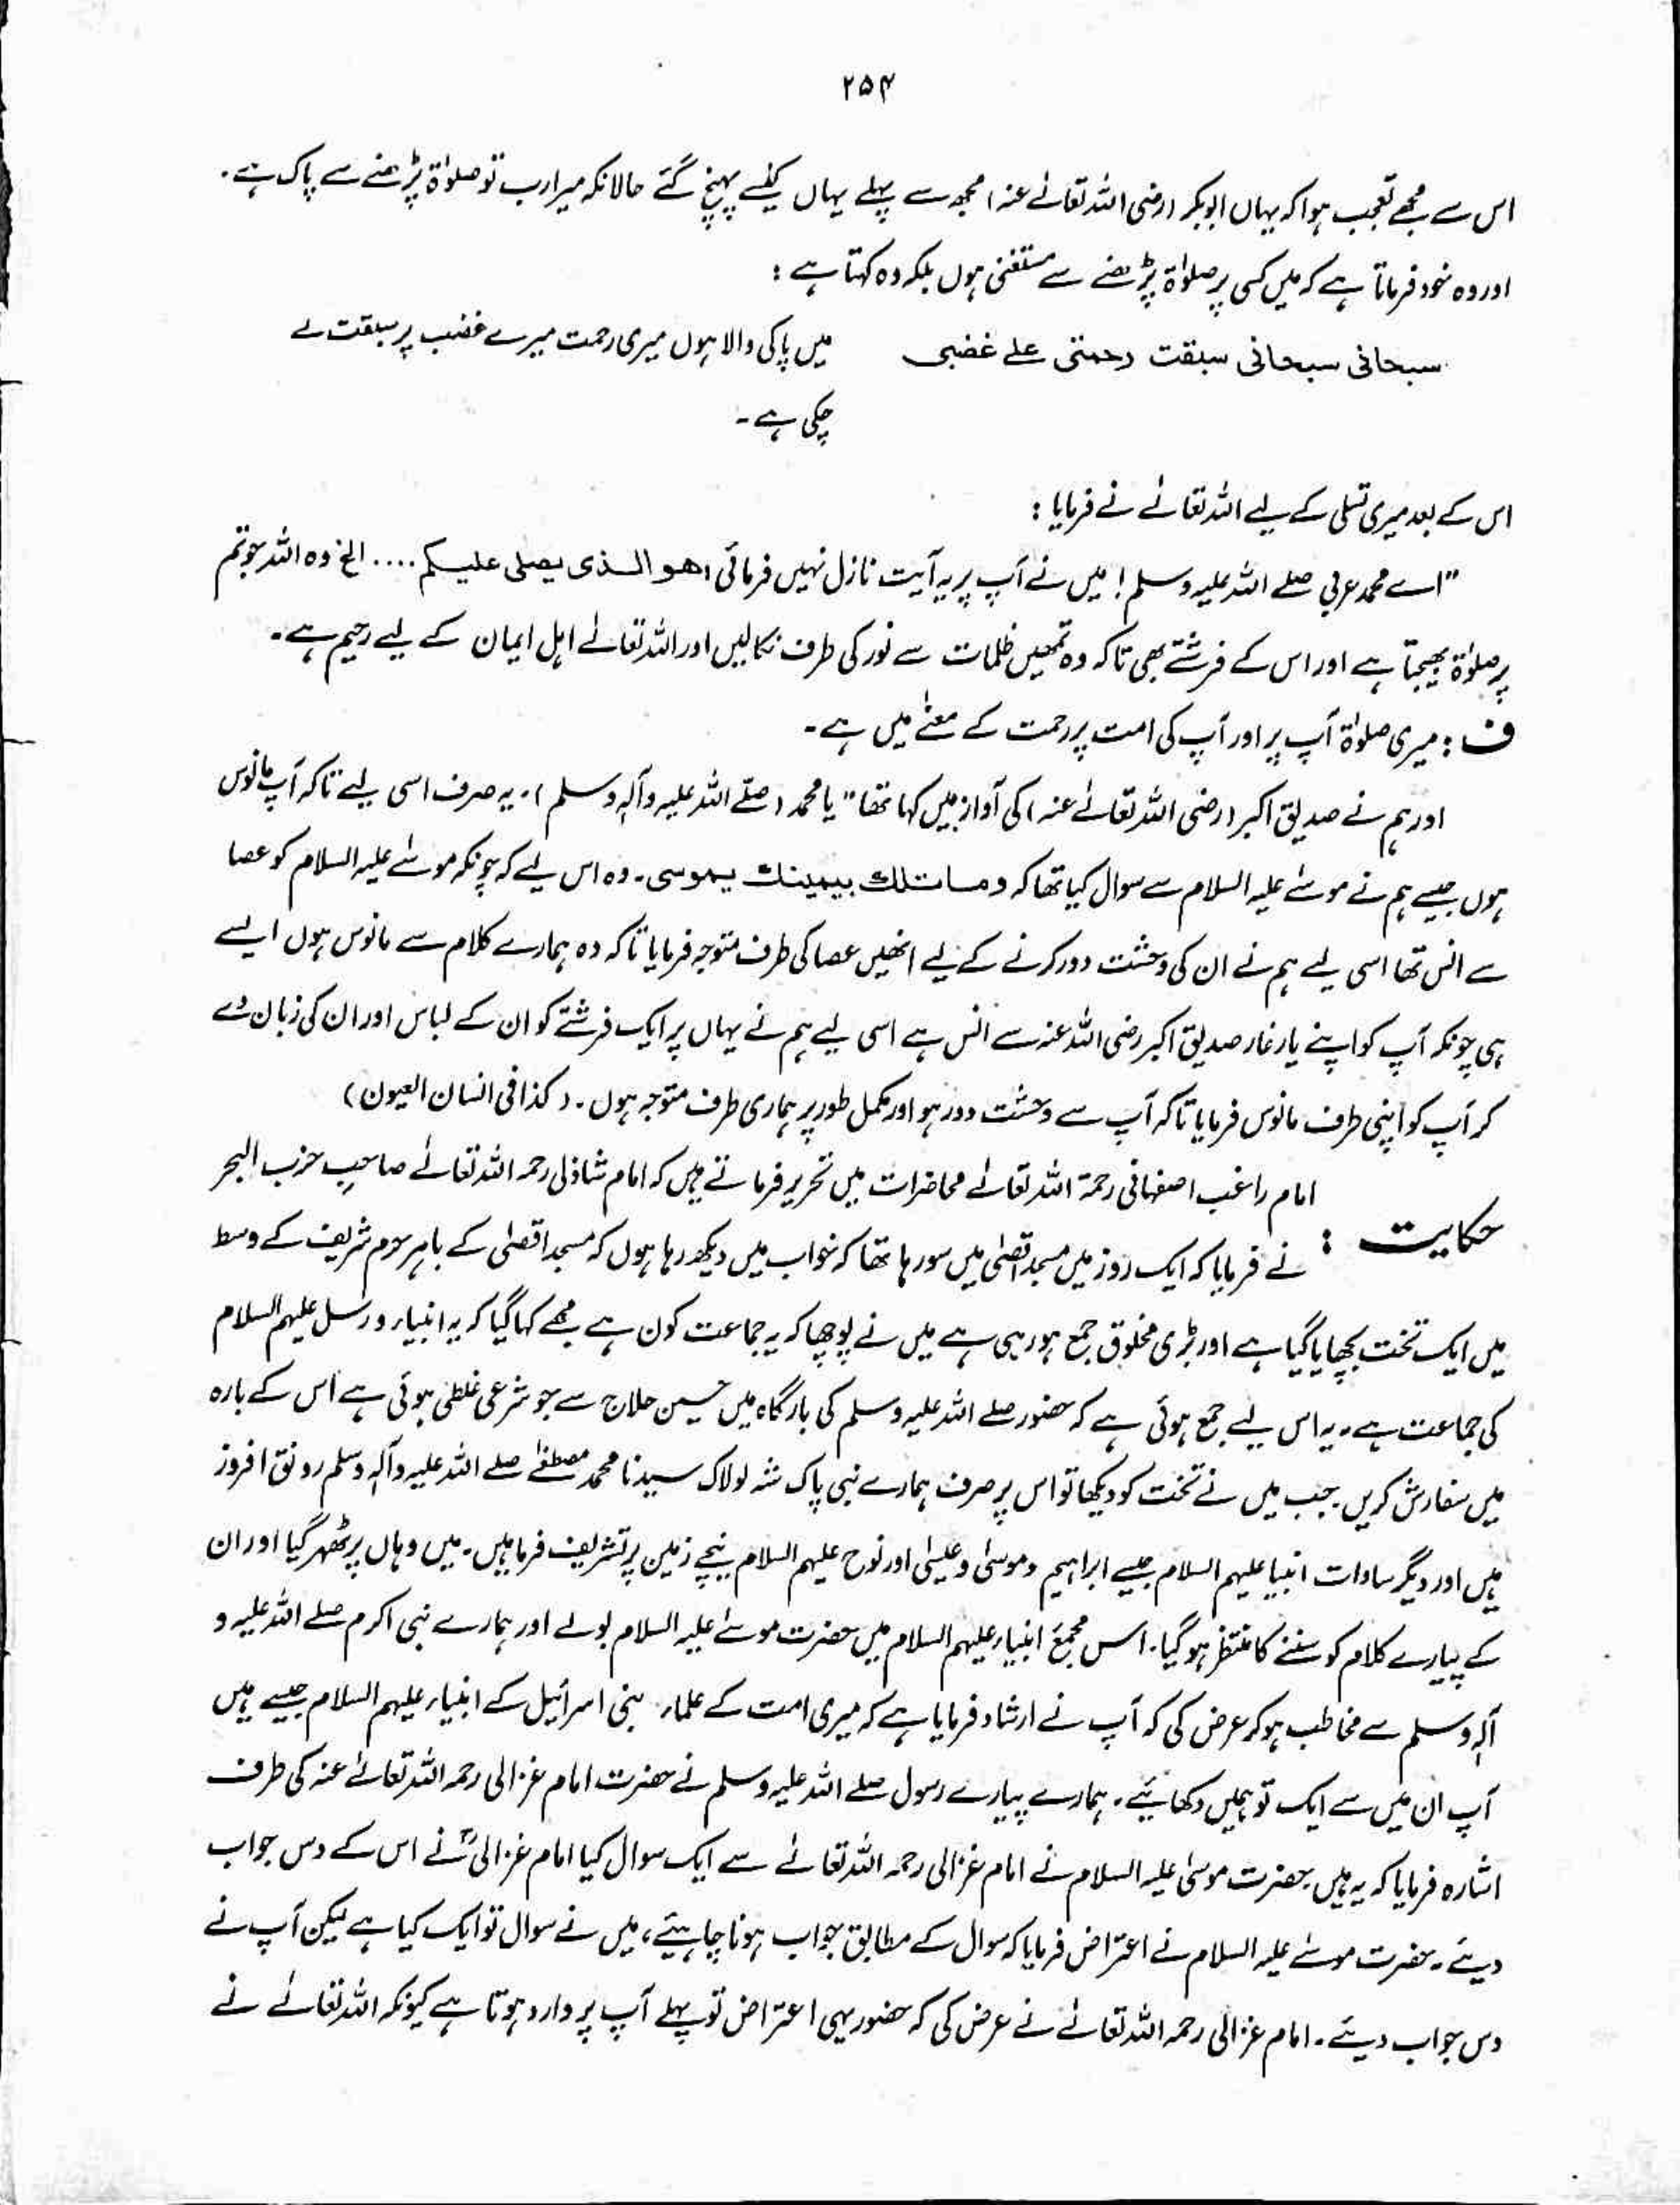 ۲۵۴
اس سے مجھے تعجب ہوا کہ یہاں ابوبکر (رضی اللہ تعالےٰ عنہ) مجھ سے پہلے یہاں کیسے پہنچ گئے حالانکہ میرا رب تو صلوٰۃ پڑھنے سے پاک ہے۔
اور وہ خود فرماتا ہے کہ میں کسی پر صلوٰۃ پڑھنے سے مستغنی ہوں بلکہ وہ کہتا ہے :
سبحانی سبحانی سبقت رحمتی علے غضبی میں پاکی والا ہوں میری رحمت میرے غضب پر سبقت لے
چکی ہے۔
اس کے بعد میری تسلی کے لیے اللہ تعالےٰ نے فرمایا :
"اے محمد عربی صلے اللہ علیہ وسلم! میں نے آپ پر یہ آیت نازل نہیں فرمائی، ھو الـذی یصلی علیـکم .... الخ وہ اللہ جو تم
پر صلوٰۃ بھیجتا ہے اور اس کے فرشتے بھی تاکہ وہ تمھیں ظلمات سے نور کی طرف نکالیں اور اللہ تعالےٰ اہل ایمان کے لیے رحیم ہے۔
ف : میری صلوٰۃ آپ پر اور آپ کی امت پر رحمت کے معنےٰ میں ہے۔
اور ہم نے صدیق اکبر (رضی اللہ تعالےٰ عنہ) کی آواز میں کہا تھا "یا محمد (صلّے اللہ علیہ وآلہٖ وسلم)۔ یہ صرف اسی لیے تاکہ آپ مانوس
ہوں جیسے ہم نے موسےٰ علیہ السلام سے سوال کیا تھا کہ ومـا تـلك بیمینك یٰموسی۔ وہ اس لیے کہ چونکہ موسےٰ علیہ السلام کو عصا
سے انس تھا اسی لیے ہم نے ان کی وحشت دور کرنے کے لیے انھیں عصا کی طرف متوجہ فرمایا تاکہ وہ ہمارے کلام سے مانوس ہوں ایسے
ہی چونکہ آپ کو اپنے یار غار صدیق اکبر رضی اللہ عنہ سے انس ہے اسی لیے ہم نے یہاں پر ایک فرشتے کو ان کے لباس اور ان کی زبان دے
کر آپ کو اپنی طرف مانوس فرمایا تاکہ آپ سے وحشت دور ہو اور مکمل طور پر ہماری طرف متوجہ ہوں۔ (کذا فی انسان العیون)
امام راغب اصفہانی رحمۃ اللہ تعالےٰ محاضرات میں تحریر فرماتے ہیں کہ امام شاذلی رحمہ اللہ تعالےٰ صاحبِ حزب البحر
حکایت : نے فرمایا کہ ایک روز میں مسجد اقصٰی میں سو رہا تھا کہ خواب میں دیکھ رہا ہوں کہ مسجد اقصٰی کے باہر حرم شریف کے وسط
میں ایک تخت بچھایا گیا ہے اور بڑی مخلوق جمع ہو رہی ہے میں نے پوچھا کہ یہ جماعت کون ہے مجھے کہا گیا کہ یہ انبیاء و رسل علیہم السلام
کی جماعت ہے۔ یہ اس لیے جمع ہوئی ہے کہ حضور صلے اللہ علیہ وسلم کی بارگاہ میں حسین حلاج سے جو شرعی غلطی ہوئی ہے اس کے بارہ
میں سفارش کریں جب میں نے تخت کو دیکھا تو اس پر صرف ہمارے نبی پاک شہ لولاک سیدنا محمد مصطفےٰ صلے اللہ علیہ وآلہٖ وسلم رونق افروز
ہیں اور دیگر سادات انبیا علیہم السلام جیسے ابراہیم و موسیٰ و عیسٰی اور نوح علیہم السلام نیچے زمین پر تشریف فرما ہیں۔ میں وہاں پر ٹھہر گیا اور ان
کے پیارے کلام کو سننے کا منتظر ہو گیا۔ اس مجمع انبیاء علیہم السلام میں حضرت موسےٰ علیہ السلام بولے اور ہمارے نبی اکرم صلے اللہ علیہ و
آلہٖ وسلم سے مخاطب ہو کر عرض کی کہ آپ نے ارشاد فرمایا ہے کہ میری امت کے علماء بنی اسرائیل کے انبیاء علیہم السلام جیسے ہیں
آپ ان میں سے ایک تو ہمیں دکھائیے۔ ہمارے پیارے رسول صلے اللہ علیہ وسلم نے حضرت امام غزالی رحمہ اللہ تعالےٰ عنہ کی طرف
اشارہ فرمایا کہ یہ ہیں۔ حضرت موسیٰ علیہ السلام نے امام غزالی رحمہ اللہ تعالےٰ سے ایک سوال کیا امام غزالیؒ نے اس کے دس جواب
دیئے۔ حضرت موسےٰ علیہ السلام نے اعتراض فرمایا کہ سوال کے مطابق جواب ہونا چاہیئے، میں نے سوال تو ایک کیا ہے لیکن آپ نے
دس جواب دیئے۔ امام غزالی رحمہ اللہ تعالےٰ نے عرض کی کہ حضور یہی اعتراض تو پہلے آپ پر وارد ہوتا ہے کیونکہ اللہ تعالےٰ نے